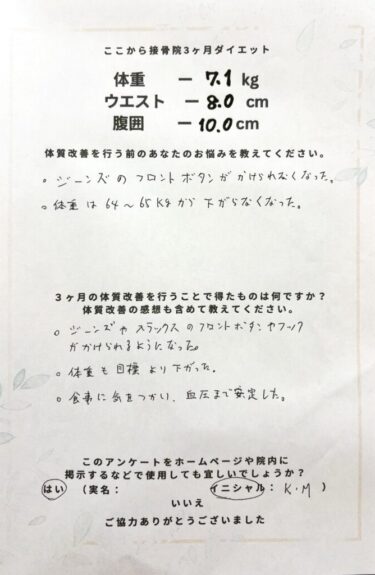 ここから接骨院3ヶ月ダイエット
体重 ー 7.1 kg
ウエスト ー 8.0 cm
腹囲 ー 10.0 cm
体質改善を行う前のあなたのお悩みを教えてください。
。ジーンズのフロントボタンがかけられなくなった。
。体重は64〜65Kgから下がらなくなった。
3ヶ月の体質改善を行うことで得たものは何ですか？
体質改善の感想も含めて教えてください。
。ジーンズやスラックスのフロントボタンやフック
がかけられるようになった。
。体重も目標より下がった.
。食事に気をつかい、血圧まで安定した。
このアンケートをホームページや院内に
掲示するなどで使用しても宜しいでしょうか？
はい （実名： イニシャル： K・M ）
いいえ
ご協力ありがとうございました